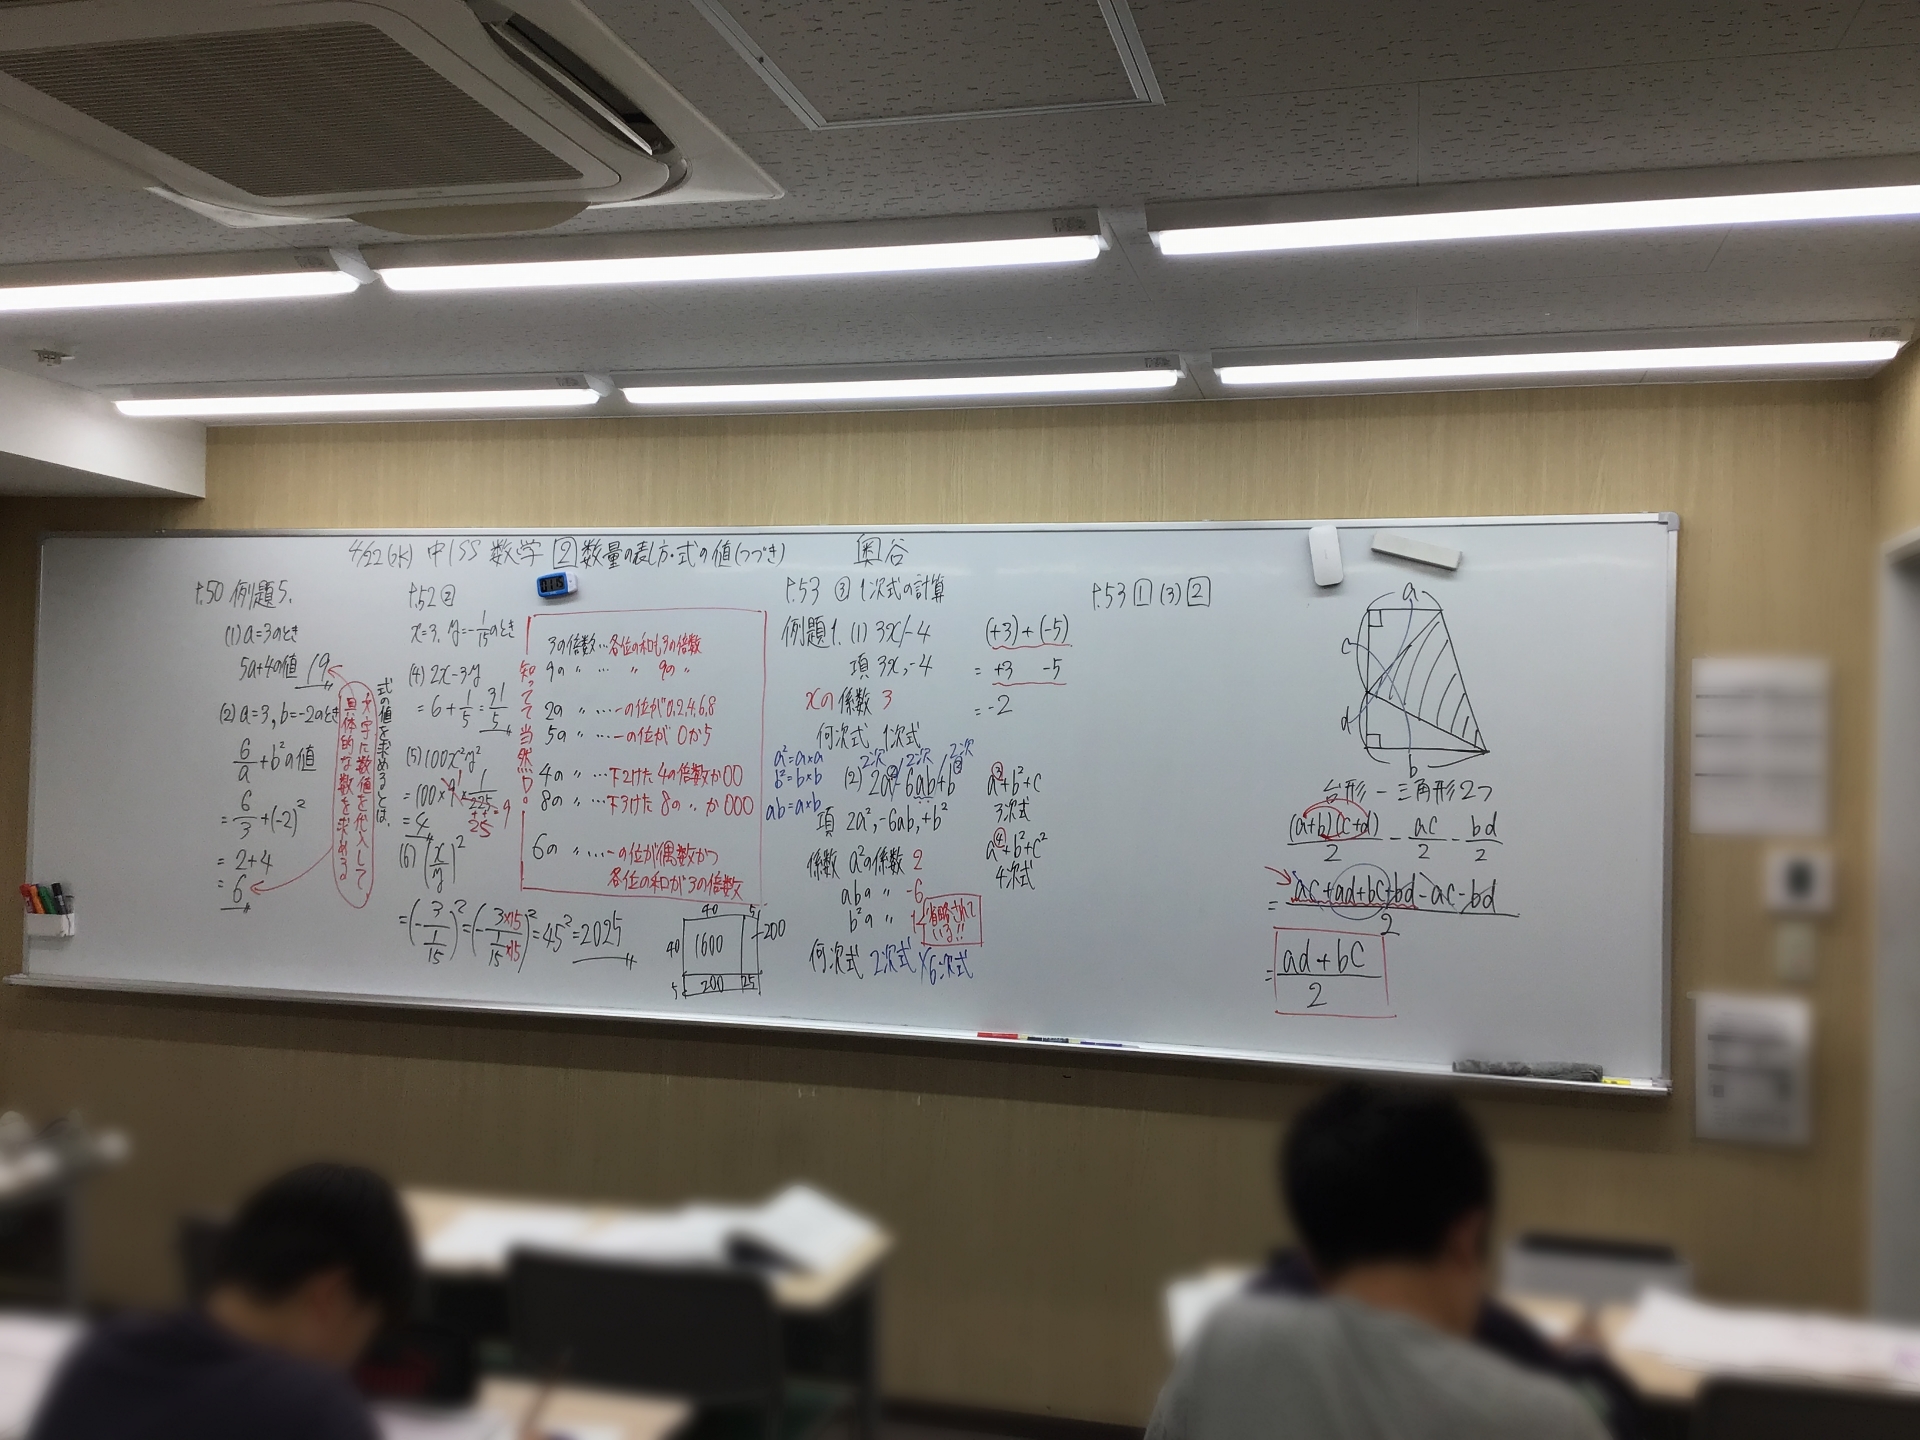 4/22(水) 中1SS 数学 2 数量の表し方・式の値(つづき) 奥谷
P.50 例題5.
(1) a=3のとき
5a+4の値 19
(2) a=3, b=-2のとき
6/a+b²の値
=6/3+(-2)²
=2+4
=6
式の値を求めるとは、
文字に数値を代入して
具体的な数を求める
P.52 2
x=3, y=-1/15のとき
(4) 2x-3y
=6+1/5=31/5
(5) 100x²y²
=100×9×1/225
25
=4
(6) (x/y)²
=(-3/(1/15))²=(-3×15/(1/15×15))²=45²=2025
40 5
40 1600 200
5 200 25
知ってて当然ロ!
3の倍数…各位の和も3の倍数
9の 〃 … 〃 9の 〃
2の 〃 …一の位が0,2,4,6,8
5の 〃 …一の位が 0か5
4の 〃 …下2けた 4の倍数か00
8の 〃 …下3けた 8の 〃 か000
6の 〃 …一の位が偶数かつ
各位の和が3の倍数
P.53 ③ 1次式の計算
例題1. (1) 3x/-4
項 3x, -4
xの係数 3
何次式 1次式
(+3)+(-5)
= +3 -5
= -2
a²=a×a
b²=b×b
ab=a×b
2次 2次 2次
(2) 2a²/-6ab/+b²
項 2a², -6ab, +b²
係数 a²の係数 2
abの 〃 -6
b²の 〃 1
省略されて
いる!!
何次式 2次式 ×6次式
a³+b²+c
3次式
a⁴+b²+c²
4次式
P.53 1 (3) 2
a
c
d
b
台形-三角形2つ
(a+b)(c+d)/2 - ac/2 - bd/2
= (ac+ad+bc+bd-ac-bd)/2
= (ad+bc)/2